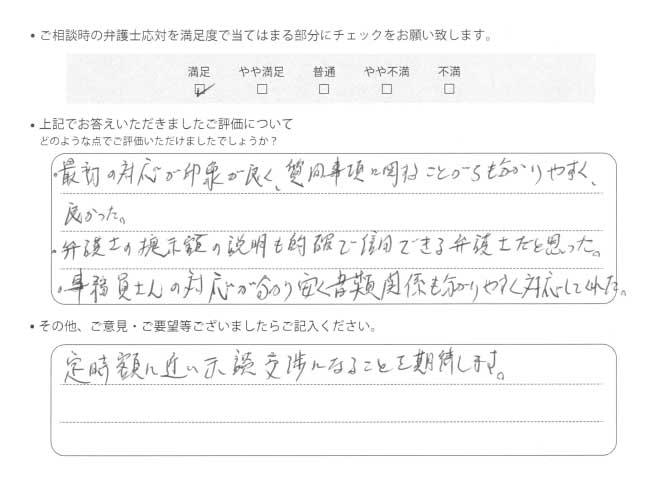 • ご相談時の弁護士応対を満足度で当てはまる部分にチェックをお願い致します。
満足 やや満足 普通 やや不満 不満
☑ □ □ □ □
• 上記でお答えいただきましたご評価について
どのような点でご評価いただけましたでしょうか？
・最初の対応が印象が良く、質問事項に関ることがらも分かりやすく、
良かった。
・弁護士の提示額の説明も的確で信用できる弁護士だと思った。
・事務員さんの対応が分かり安く書類関係も分かりやすく対応してくれた。
• その他、ご意見・ご要望等ございましたらご記入ください。
定時額に近い示談交渉になることを期待します。